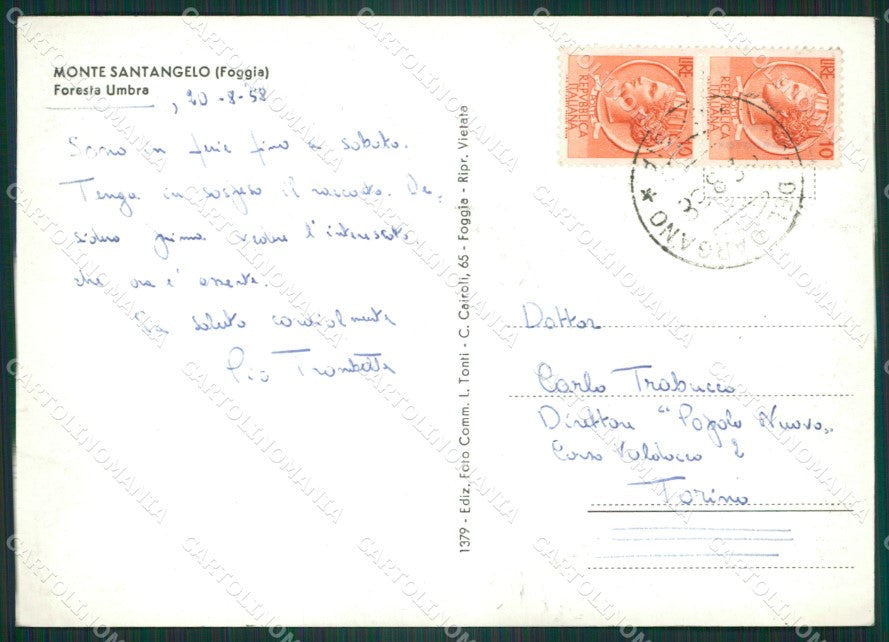 MONTE SANTANGELO (Foggia)
Foresta Umbra
, 20-8-58
Sono in ferie fino a sabato.
Tengo in sospeso il racconto. De-
sidero prima vedere l'interessato
che ora è assente.
La saluto cordialmente
Pio Trombetta
1379 - Ediz. Foto Comm. L. Tonti - C. Cairoli, 65 - Foggia - Ripr. Vietata
LIRE 10
REPVBBLICA
ITALIANA
LIRE 10
REPVBBLICA
ITALIANA
DEL GARGANO *
Dottor
Carlo Trabucco
Direttore "Popolo Nuovo„
Corso Valdocco 2
Torino
CARTOLINOMANIA